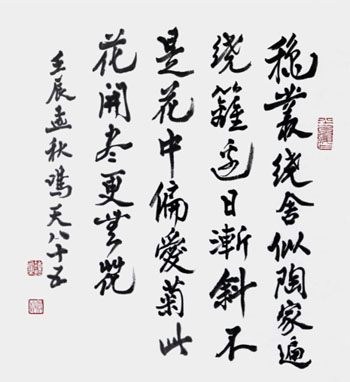 穐叢绕舍似陶家遍
绕籬边日漸斜不
是花中偏愛菊此
花開尽更無花
壬辰孟秋鸿天八十五